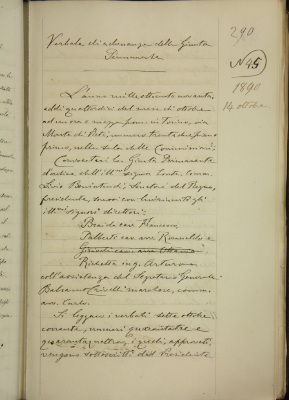 290
N 45
1890
14 ottobre
Verbale di adunanza della Giunta
Permanente
L'anno milleottocentonovanta,
addì quattordici del mese di ottobre
ad ore e mezza pom. in Torino, via
Monte di Pietà, numero trenta piano
primo, nella sala delle Commissioni.
Convocatasi la Giunta Permanente
d'ordine dell'ill.mo signor Conte comm.
Livio Benintendi, Senatore del Regno,
presidente, sono intervenuti gli
ill.mi signori direttori:
cav. Francesco,
Balberti cav. avv. Romualdo e
cav. avv.
Ricchetta ing. Arturo
coll'assistenza del Segretario Generale
Balsamo Crivelli marchese, comm.
avv. Carlo.
Si leggono i verbali sette ottobre
corrente, numeri quarantatre e
quarantaquattro, i quali, approvati,
vengono sottoscritti dal Presidente